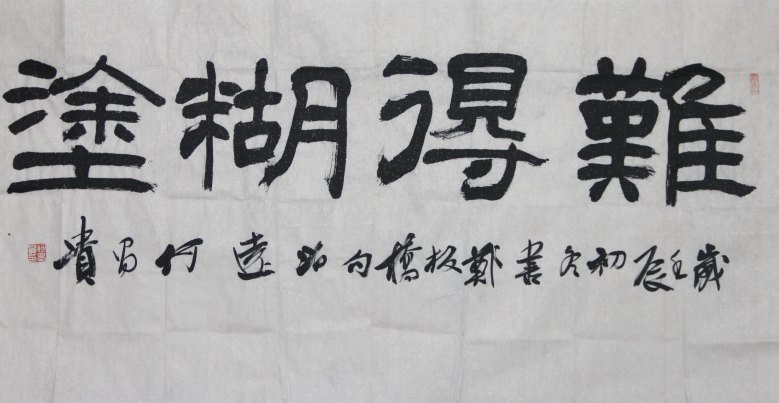 難得糊塗
歲壬辰初冬書鄭板橋句 遠 何 貴